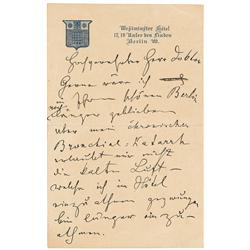 Westminster Hôtel
17, 18 Unter den Linden
Berlin W.
Hochgeehrter Herr Doktor
Gerne wäre ich
in Ihrem schönen Berlin
noch länger geblieben
aber mein chronischer
Bronchial-Katarrh
erlaubt mir nicht
die kalten Luft-
welche ich im Hôtel
einzuathmen gezwungen
bin länger ein zu-
athmen.